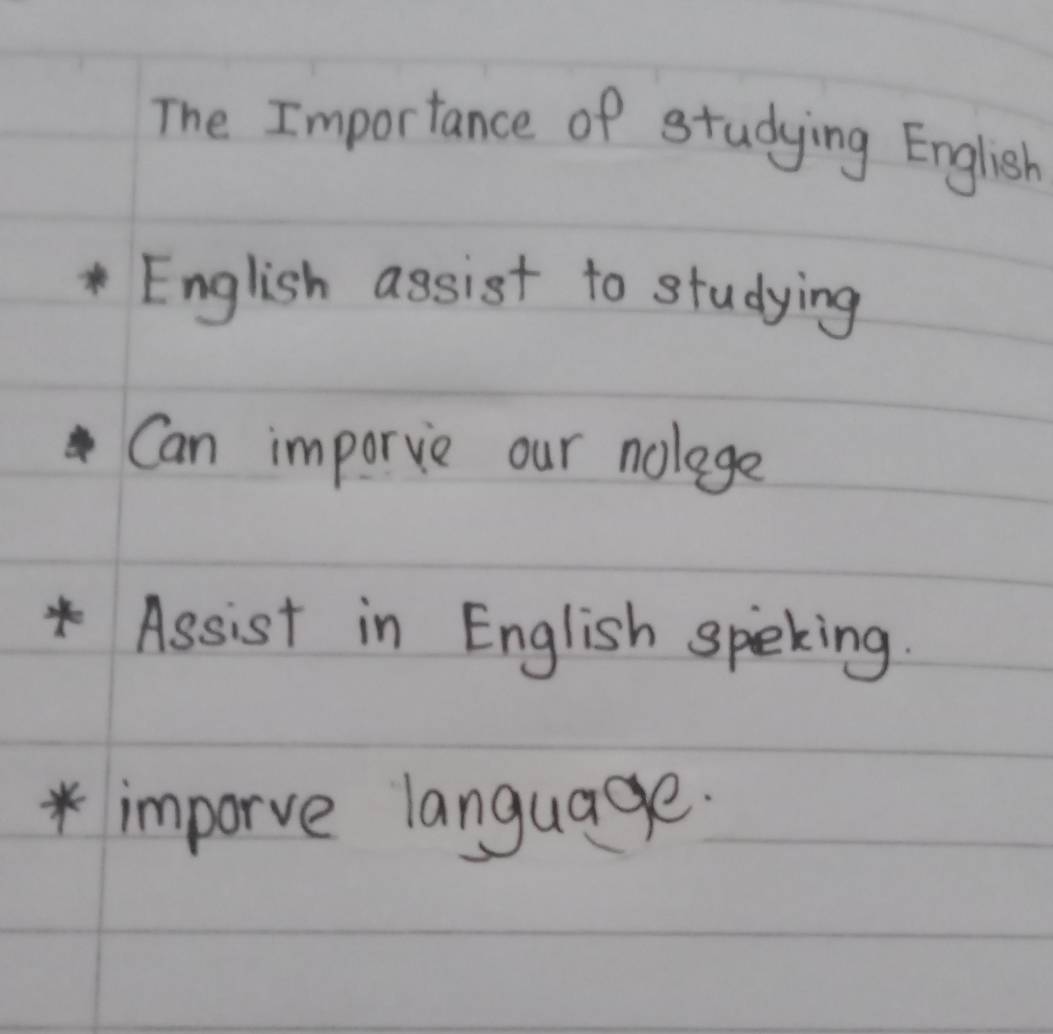 The Importance of studying English
* English assist to studying
* Can imporvie our nolege
* Assist in English speking.
* imporve language.